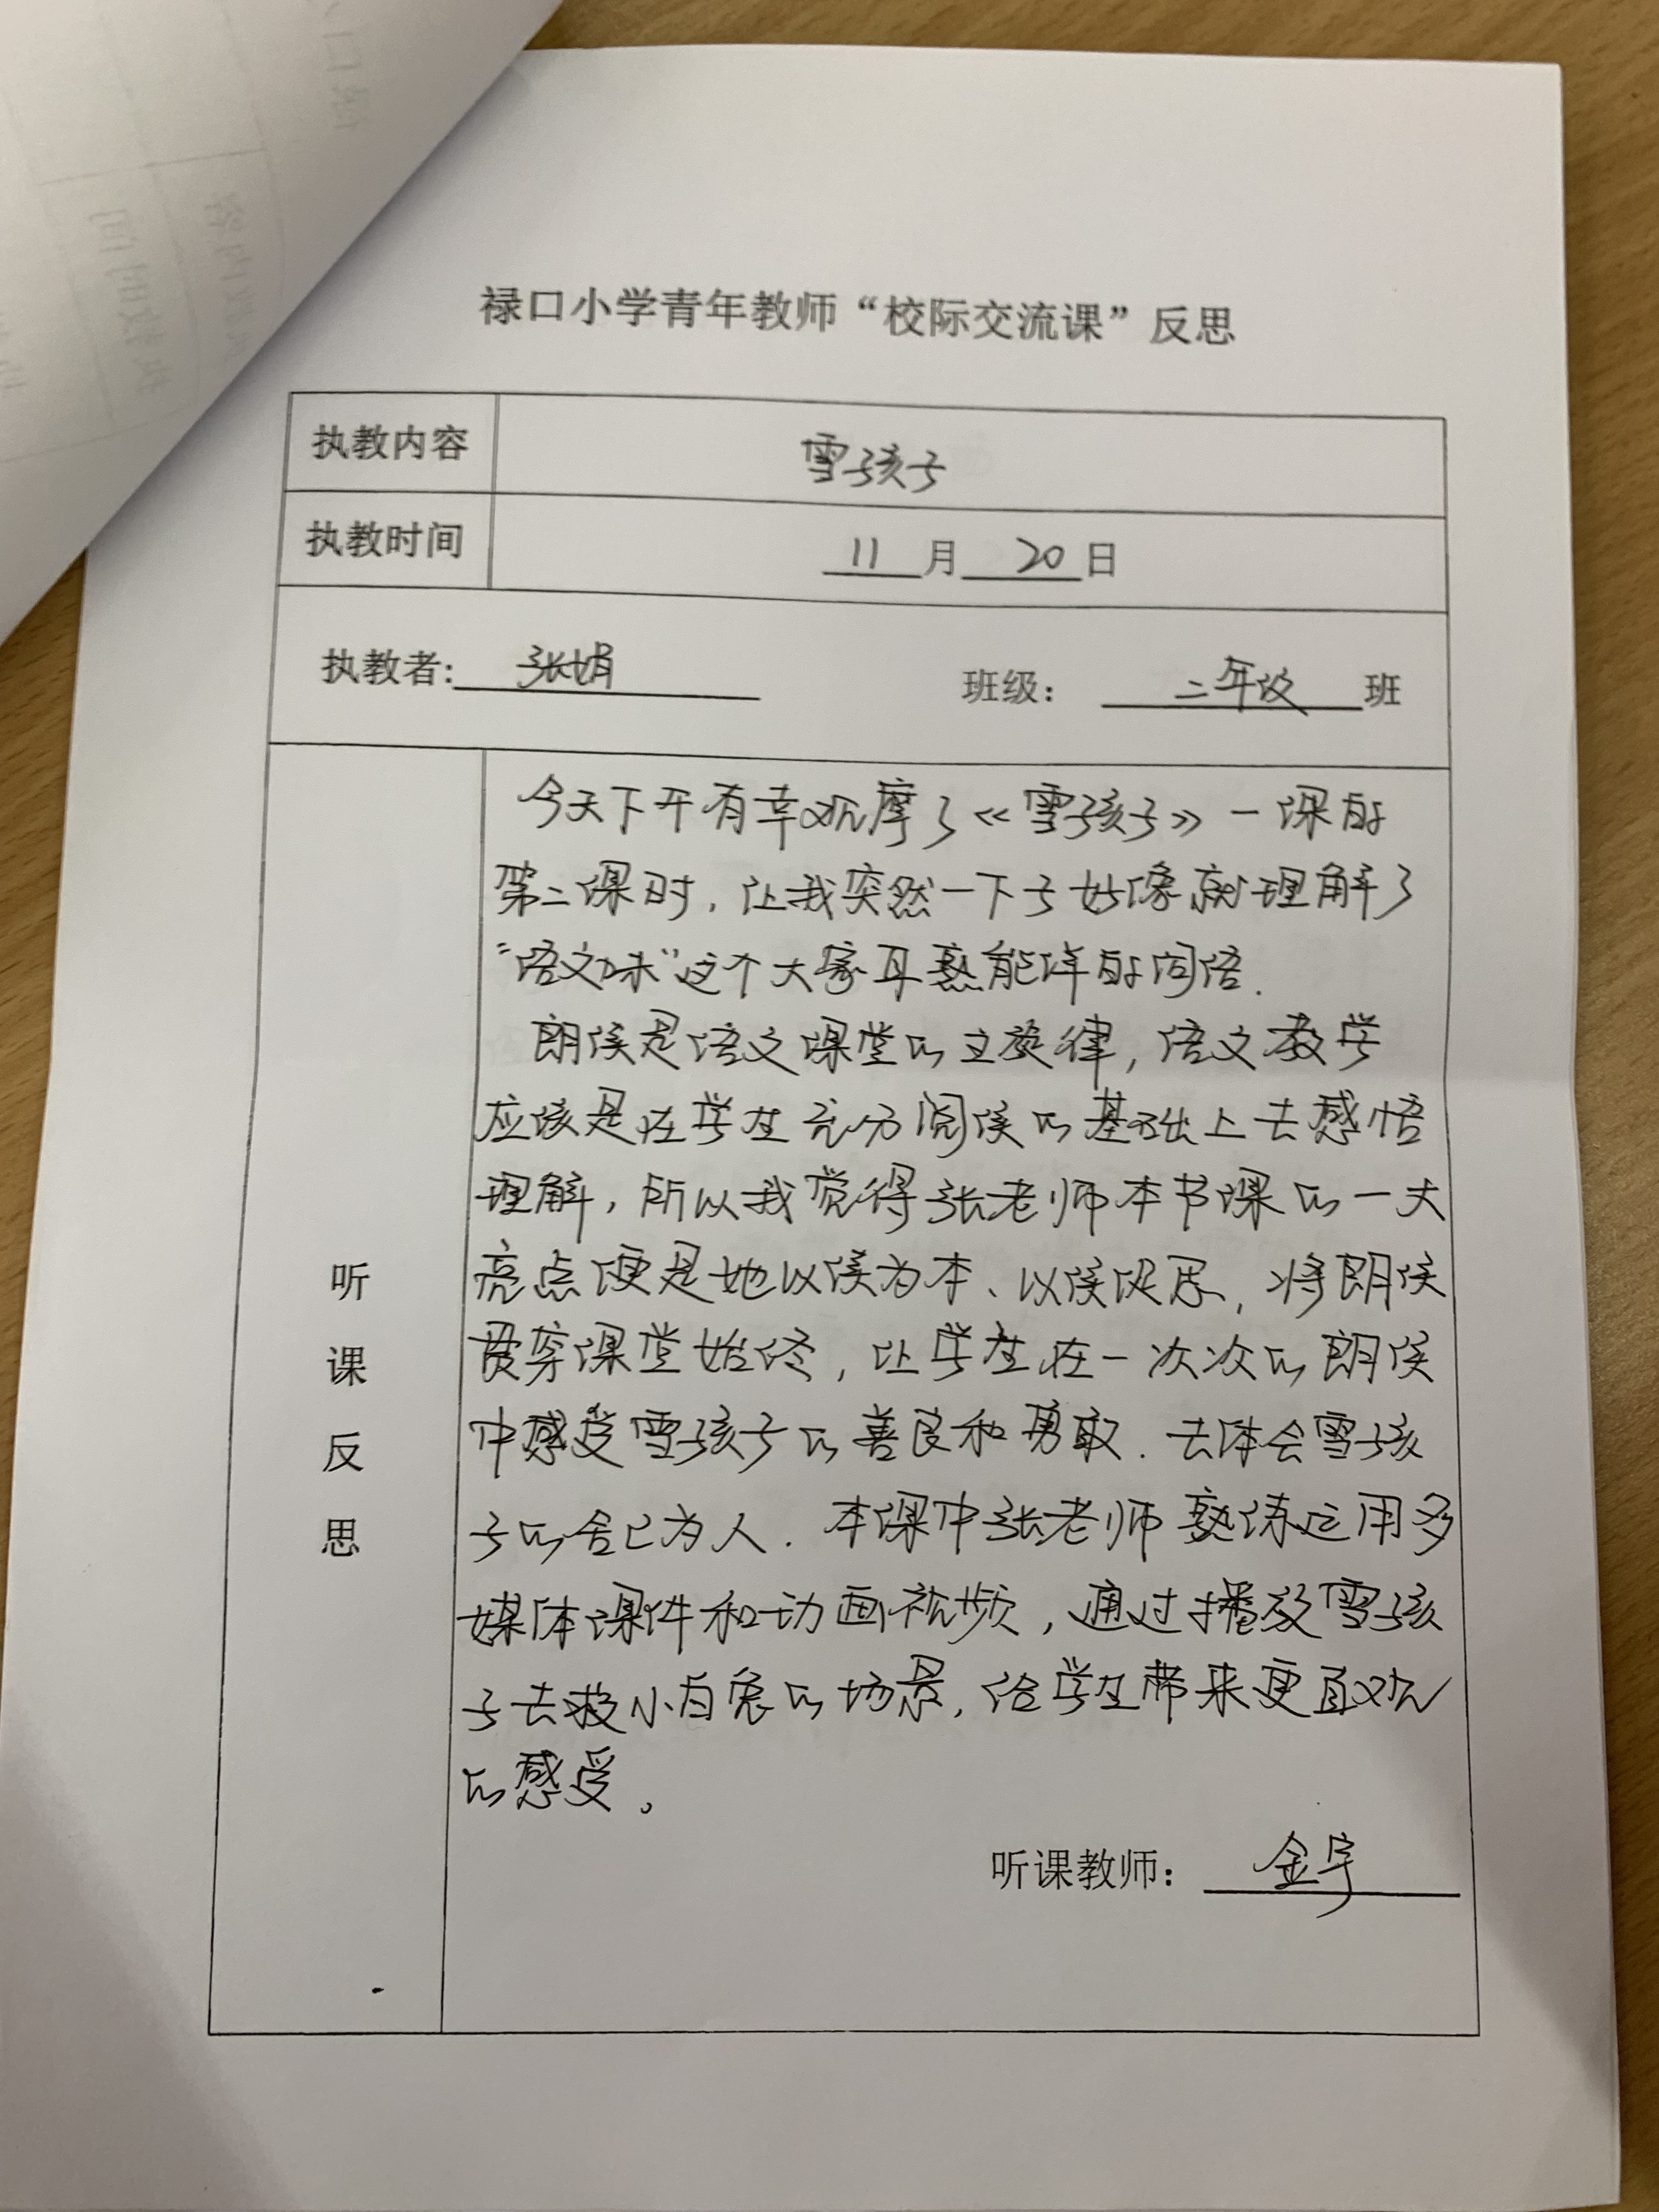 禄口小学青年教师“校际交流课”反思
执教内容 雪孩子
执教时间 11月20日
执教者: 张娟 班级: 二年级班
今天下午有幸观摩了《雪孩子》一课的
第二课时,让我突然一下子好像就理解了
“语文味”这个大家耳熟能详的词语.
朗读是语文课堂的主旋律,语文教学
应该是在学生充分阅读的基础上去感悟
理解,所以我觉得张老师本节课的一大
亮点便是她以读为本、以读促思,将朗读
贯穿课堂始终,让学生在一次次的朗读
中感受雪孩子的善良和勇敢.去体会雪孩
子的舍己为人.本课中张老师熟练运用多
媒体课件和动画视频,通过播放雪孩
子去救小白兔的场景,给学生带来更直观
的感受。
听课反思
听课教师: 金宇